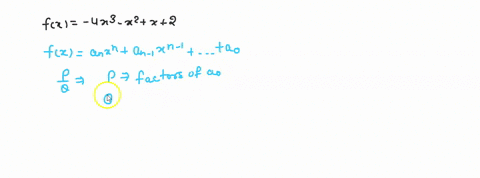 f(x) = -4x³-x²+x+2
f(x) = aₙxⁿ + aₙ₋₁xⁿ⁻¹ + ... + a₀
P/Q ⇒ P ⇒ factors of a₀
Q